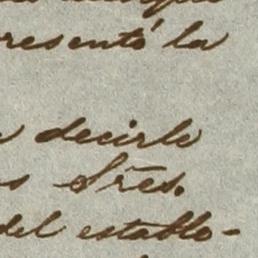 resentó la
decirle
s Sres.
del establo-